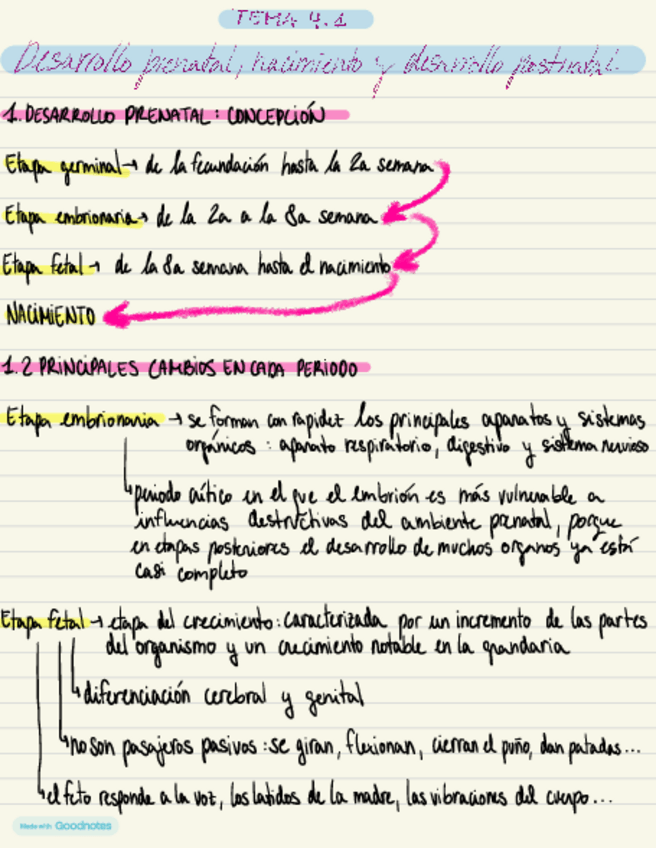 TEMA 4.1
Desarrollo prenatal, nacimiento y desarrollo postnatal.
1. DESARROLLO PRENATAL: CONCEPCIÓN
Etapa germinal → de la fecundación hasta la 2a semana
Etapa embrionaria → de la 2a a la 8a semana
Etapa fetal → de la 8a semana hasta el nacimiento
NACIMIENTO
1.2 PRINCIPALES CAMBIOS EN CADA PERIODO
Etapa embrionaria → se forman con rapidez los principales aparatos y sistemas
orgánicos: aparato respiratorio, digestivo y sistema nervioso
periodo crítico en el que el embrión es más vulnerable a
influencias destructivas del ambiente prenatal, porque
en etapas posteriores el desarrollo de muchos organos ya está
casi completo
Etapa fetal → etapa del crecimiento: caracterizada por un incremento de las partes
del organismo y un crecimiento notable en la grandaria
diferenciación cerebral y genital
no son pasajeros pasivos: se giran, flexionan, cierran el puño, dan patadas...
el feto responde a la voz, los latidos de la madre, las vibraciones del cuerpo...
Made with Goodnotes